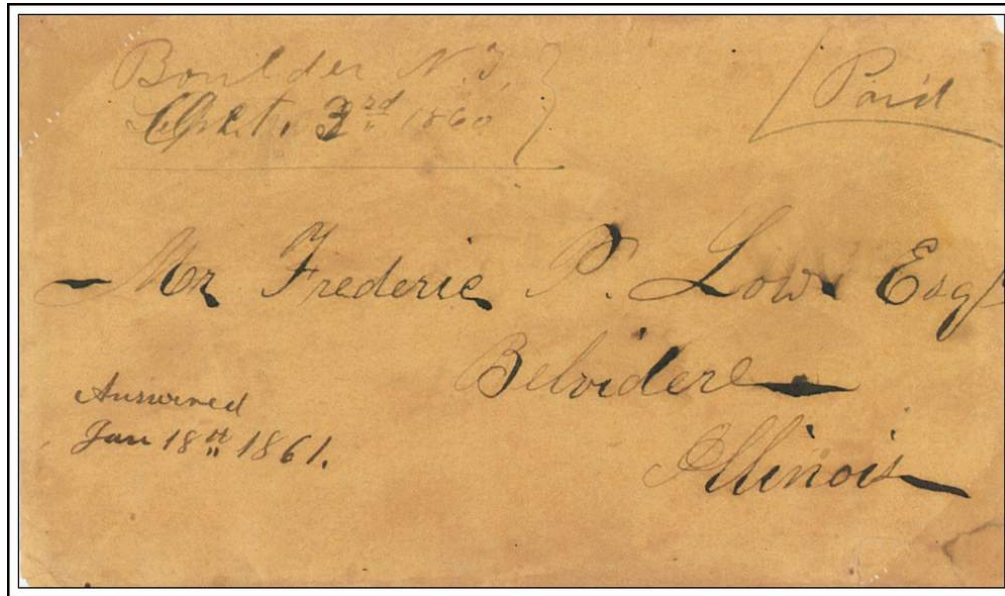 Boulder N.T.
Oct. 3rd 1860
Paid
Mr Frederic P. Low Esq
Belvidere
Illinois
Answered
Jan 18th 1861.